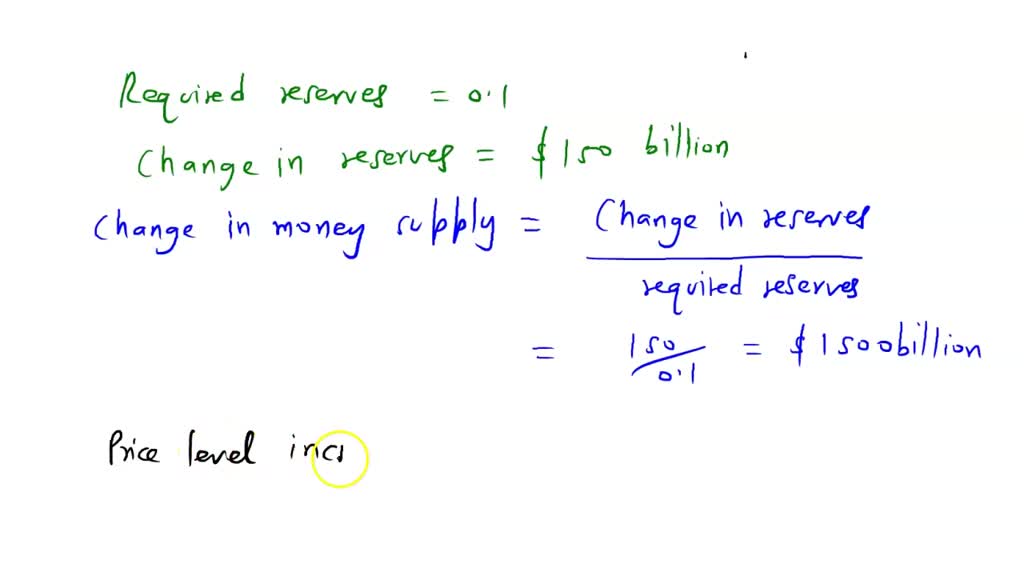 Required reserves = 0.1
Change in reserves = $150 billion
Change in money supply = Change in reserves
required reserves
= 150/0.1 = $1500billion
Price level incr